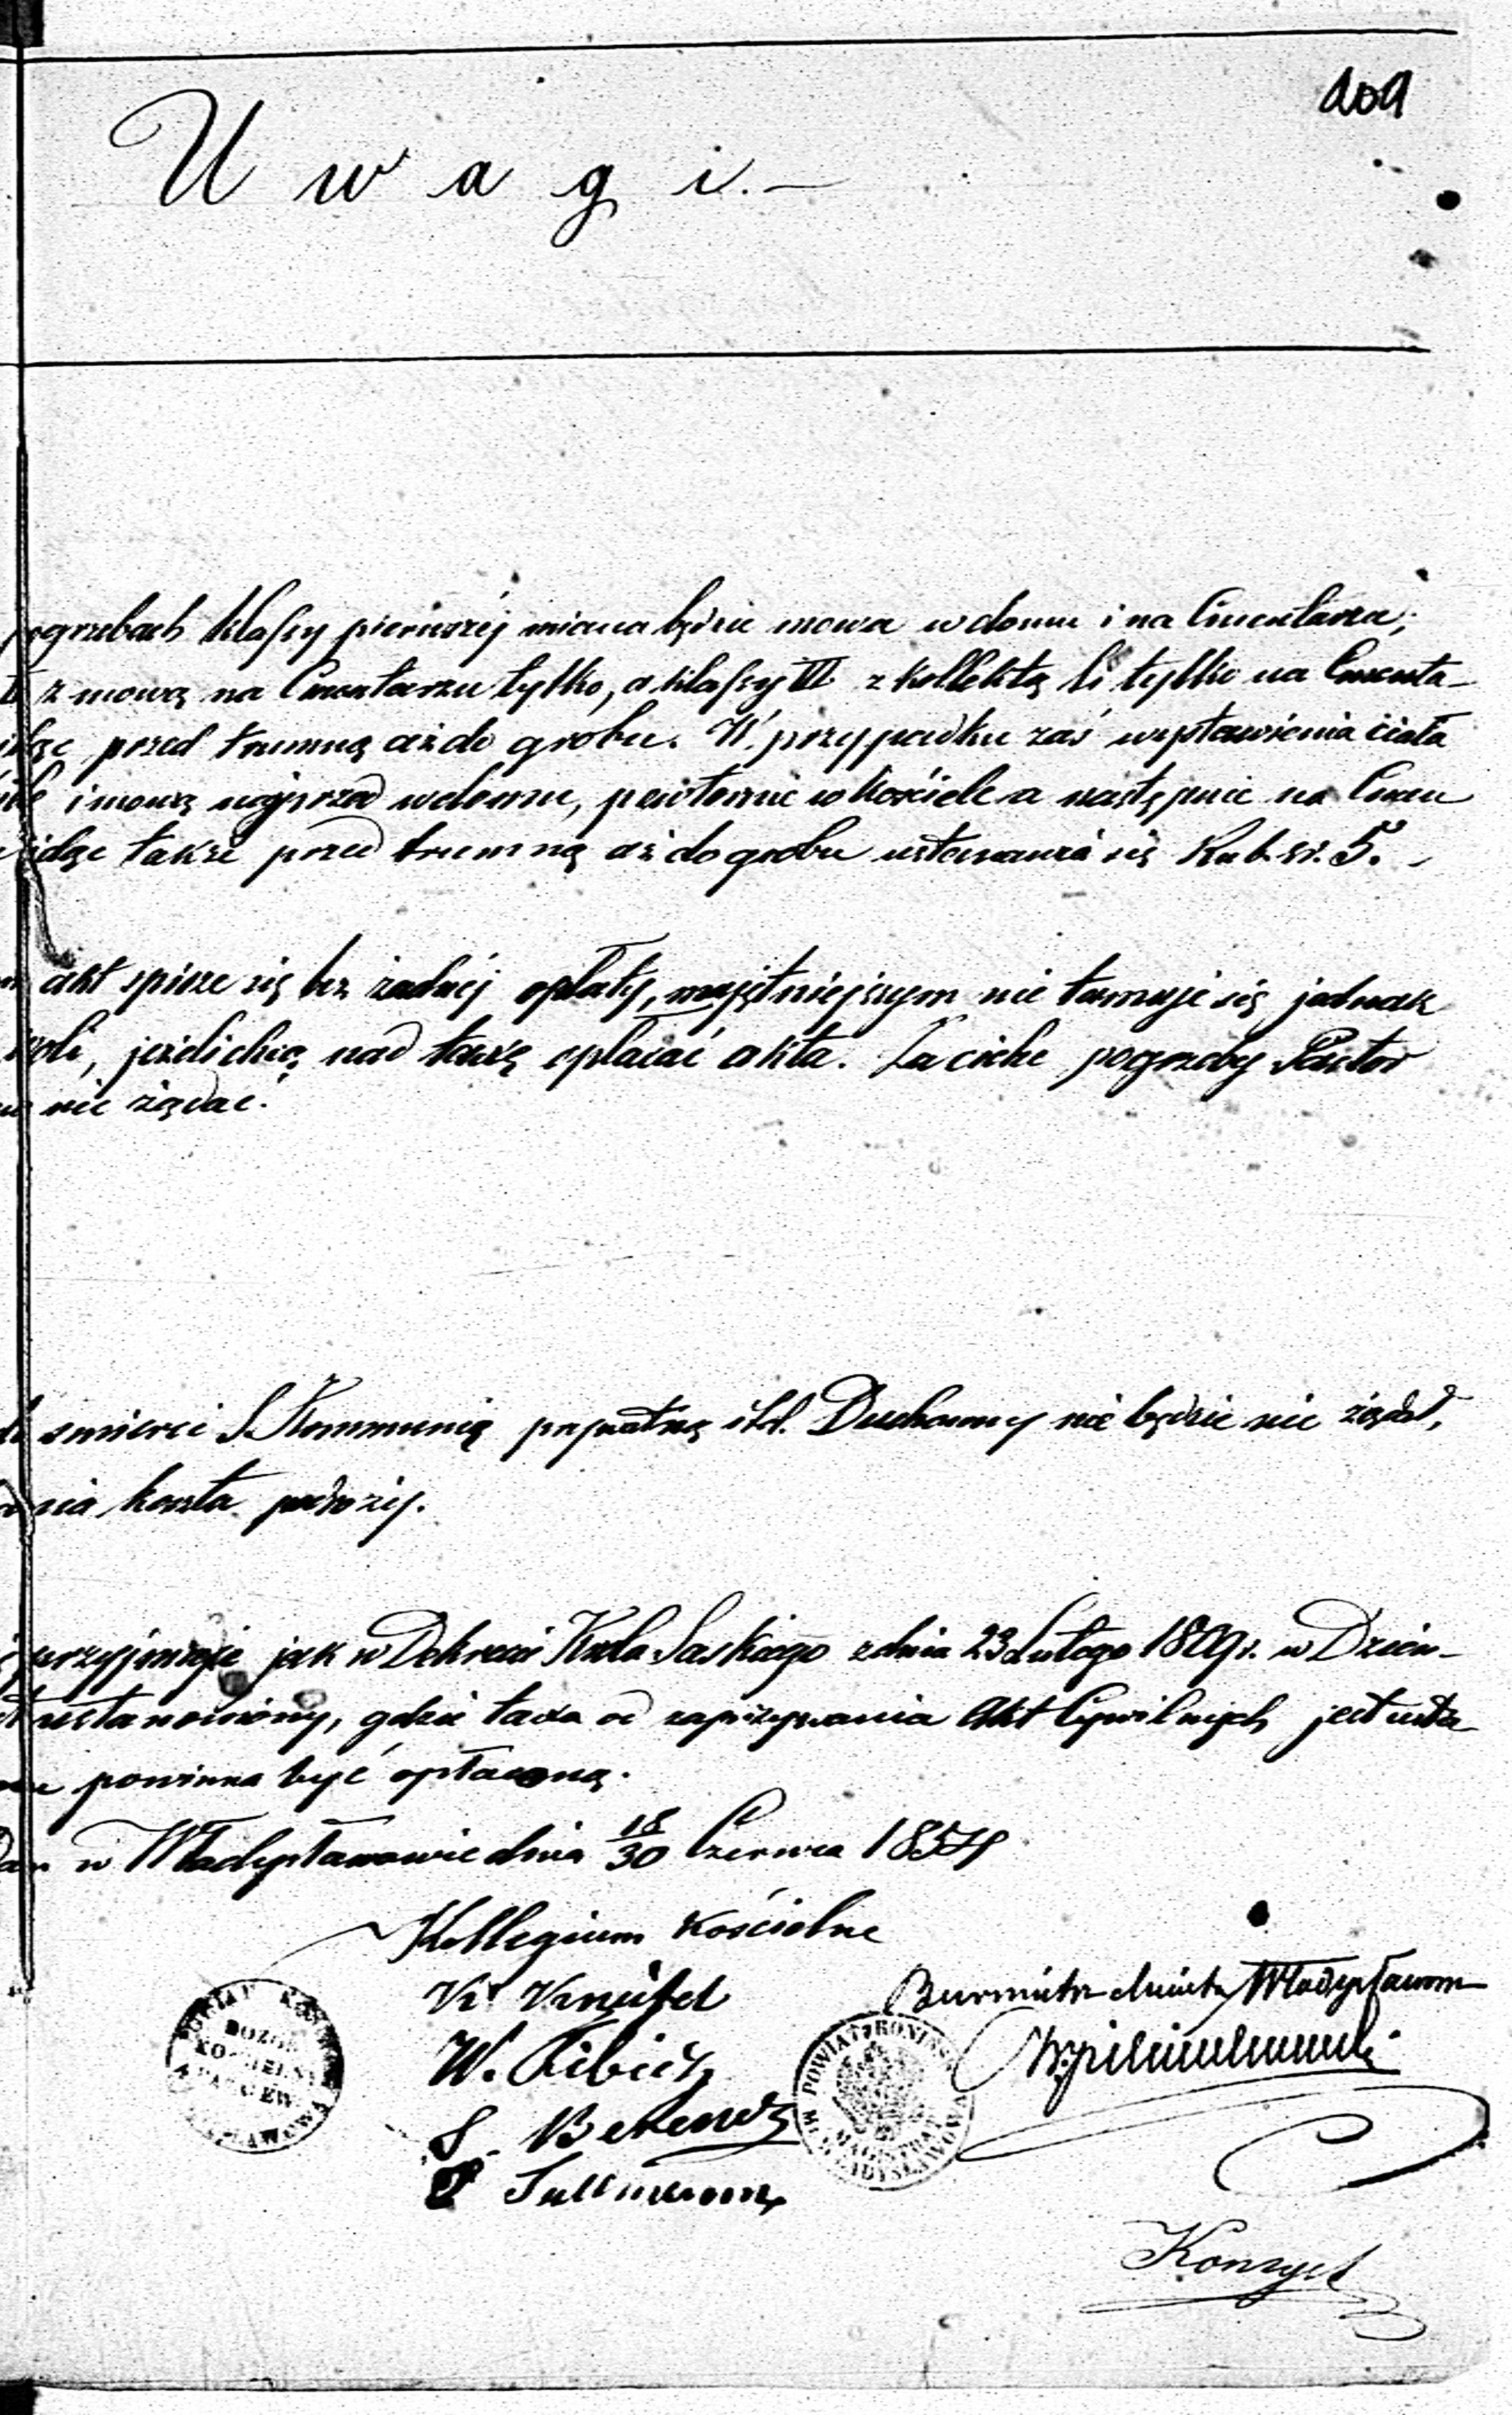 209
Uwagi. —
pogrzebach klassy pierwszéj miana będzie mowa w domu i na Cmentarzu,
z mową na Cmentarzu tylko, a klassy III z kollektą li tylko na Cmenta-
idąc przed trumną aż do grobu. W przypadku zaś wystawienia ciała
i mową najprzód w domu, powtórnie w kościele a następnie na Cmen
idąc także przed trumną aż do grobu ustanawia się Rub. sr. 5. -
akt spisze się bez żadnéj opłaty, majętniejszym nie tamuje się jednak
woli, jeżeli chcą nad taxę opłacać akta. Za ciche pogrzeby Pastor
nic żądać.
śmierci S. Kommunią prywatną itd. Duchowny nie będzie nic żądał,
koszta podróży.
przyjmuje jak w Dekrecie Króla Saskiego z dnia 23 Lutego 1809 r. w Dzien-
ustanowiony, gdzie taxa od zapisywania Akt Cywilnych jest usta-
powinna być opłaconą.
w Władysławowie dnia 18/30 Czerwca 1854
Kollegium Kościelne
Burmistrz Miasta Władysławowa
W.
S. Berendt
POWIAT KONIŃSKI
DOZÓR KOŚCIELNY
POWIAT KONIŃSKI
MAGISTRAT
M. WŁADYSŁAWOWA